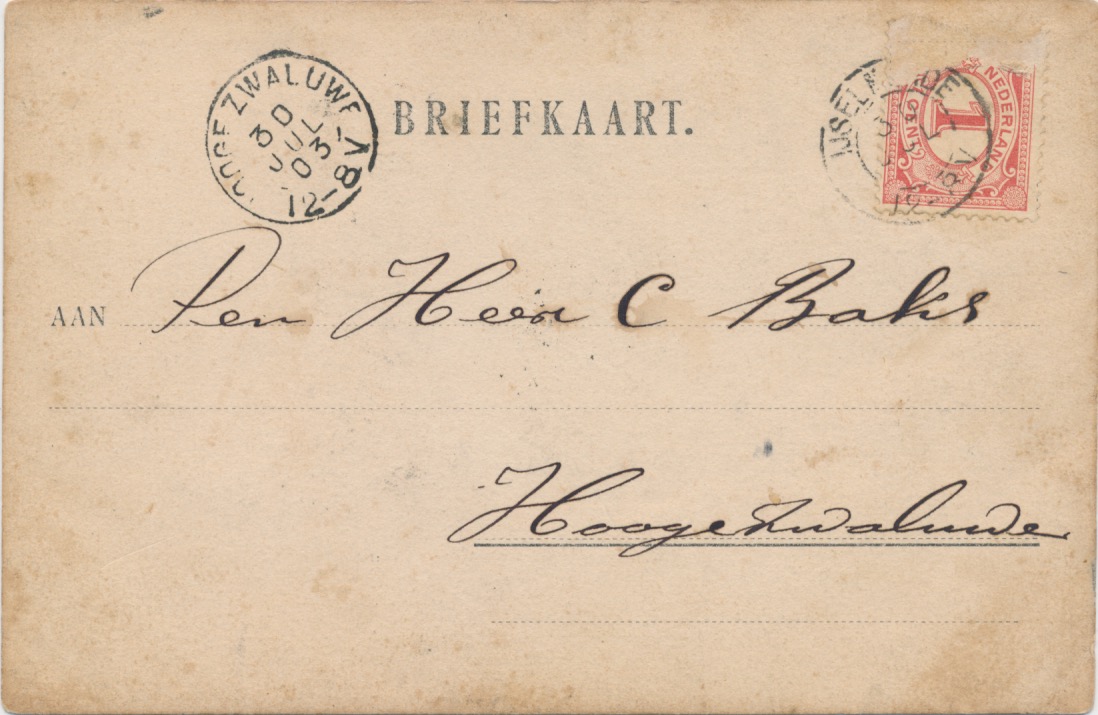 HOOGE ZWALUWE
30
JUL
03
12-8V
BRIEFKAART.
IJSELMONDE
NEDERLAND
1
CENT
AAN Den Heer C Baks
Hoogezwaluwe